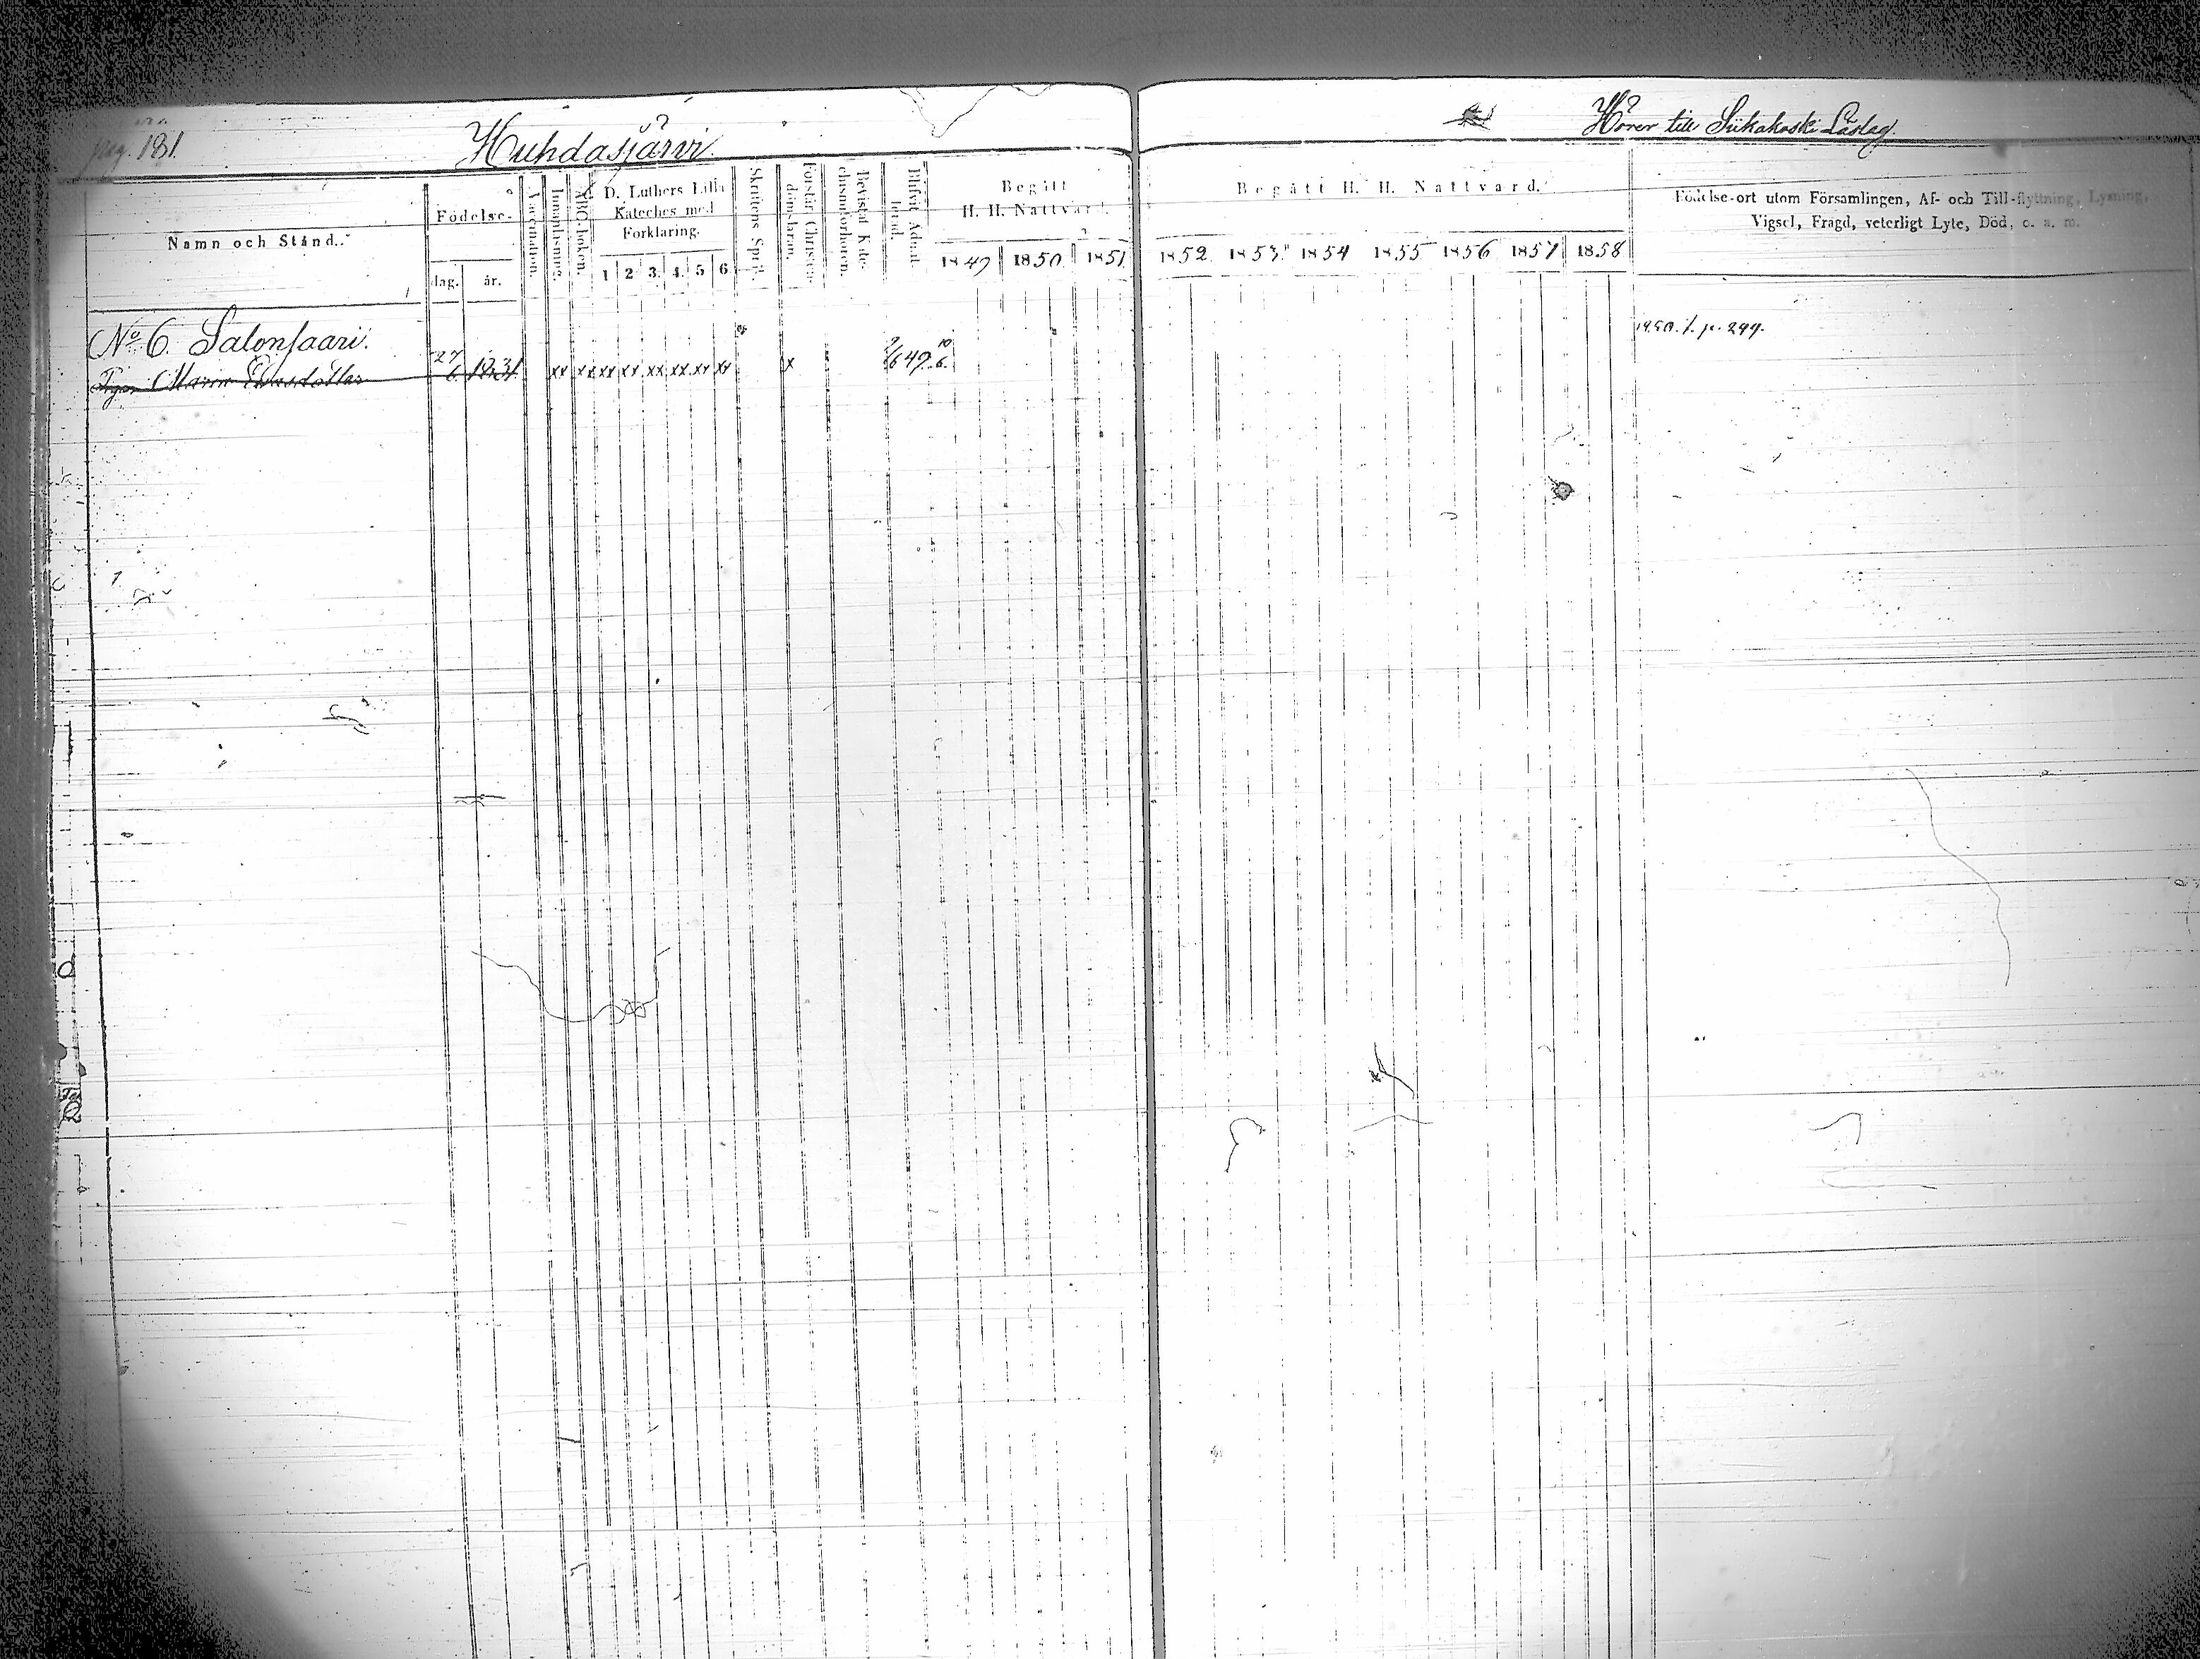 pag. 181.
Huhdasjärvi
Hörer till Siikakoski Läslag.
Namn och Stånd.
Födelse-
dag. år.
Innanläsning.
ABC-boken.
D. Luthers Lilla
Kateches med
Förklaring.
1 2 3. 4. 5 6.
Skriftens Språk.
Förstår Christen-
domsläran.
Bevistat Kate-
chismiförhören.
Blifvit Admit-
terad.
Begått
H. H. Nattvard.
1849 1850 1851
Begått H. H. Nattvard.
1852 1853 1854 1855 1856 1857 1858
Födelse-ort utom Församlingen, Af- och Till-flyttning, Lysning,
Vigsel, Frägd, veterligt Lyte, Död, o. a. m.
No 6. Salonsaari.
Maria 27/6 1831 xx xx xx xx xx xx xx xx x